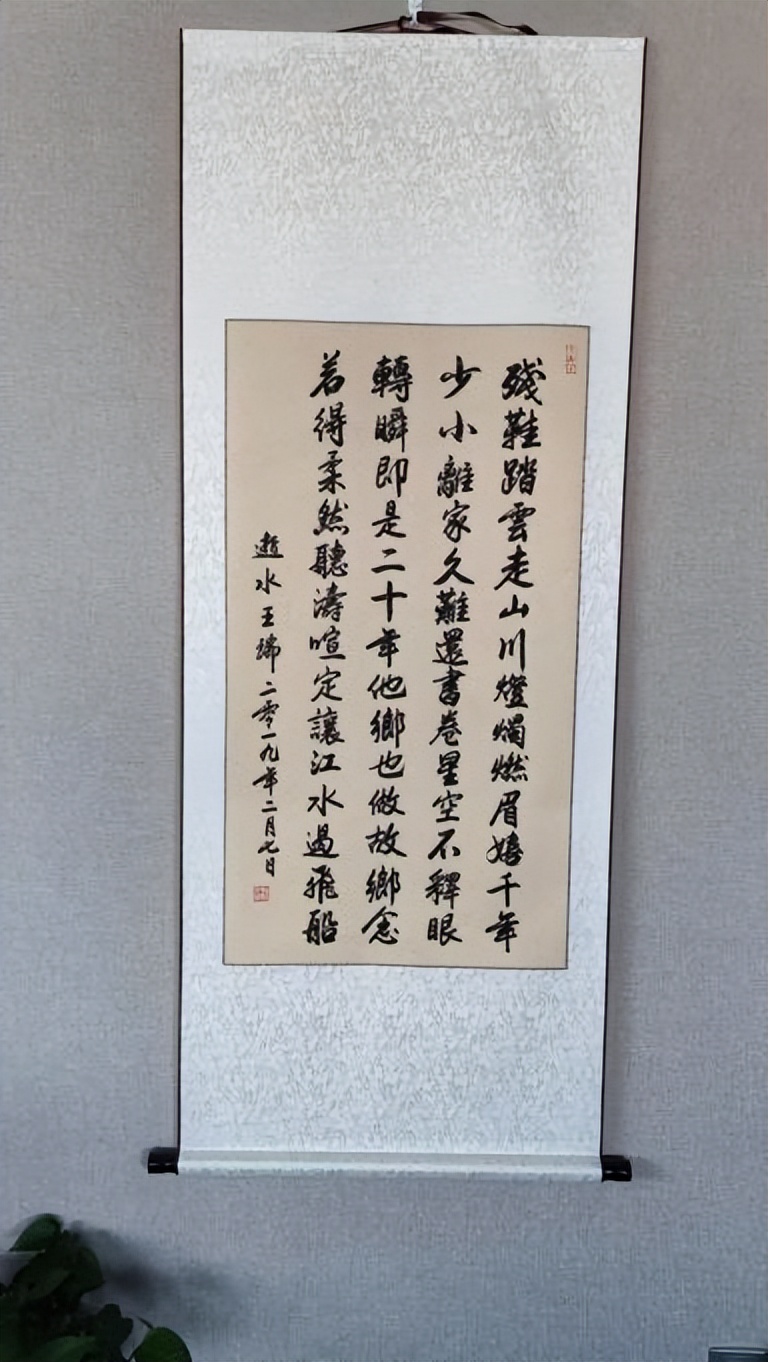 残鞋踏雲走山川燈燭燃眉嬉千年
少小離家久難還書卷星空不釋眼
轉瞬即是二十年他鄉也做故鄉念
若得柔然聽濤喧定讓江水過飛船
逝水王瑞二零一九年二月七日